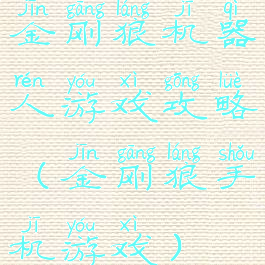 jīn gāng láng jī qì
金刚狼机器
rén yóu xì gōng lüè
人游戏攻略
jīn gāng láng shǒu
（金刚狼手
jī yóu xì
机游戏）